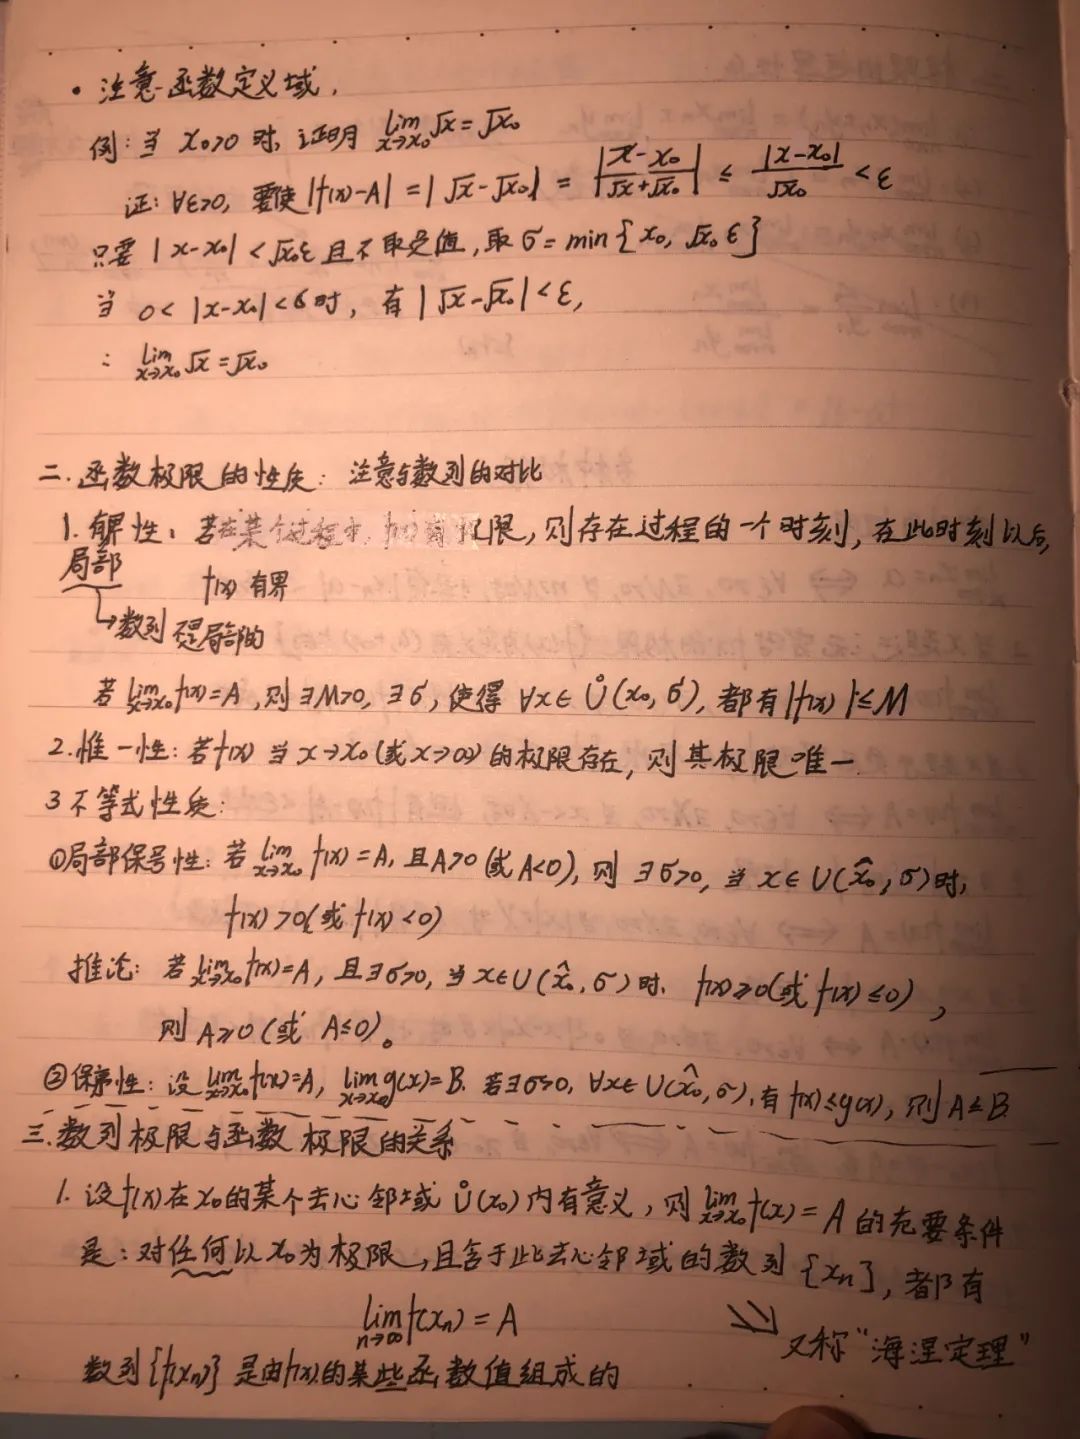 · 注意函数定义域.
例: 当 x₀>0 时, 证明 lim_{x→x₀} √x = √x₀
证: ∀ε>0, 要使 |f(x)-A| = |√x-√x₀| = |(x-x₀)/(√x+√x₀)| ≤ |x-x₀|/√x₀ < ε
只要 |x-x₀| < √x₀ε 且不取负值, 取 σ = min{x₀, √x₀ ε}
当 0< |x-x₀| <σ时, 有 |√x-√x₀| < ε,
∴ lim_{x→x₀} √x = √x₀
二. 函数极限的性质: 注意与数列的对比
1. 有界性: 若在某个过程中, f(x)有极限, 则存在过程的一个时刻, 在此时刻以后,
局部 f(x) 有界
→数列 是局部的
若 lim_{x→x₀} f(x)=A, 则 ∃M>0, ∃σ, 使得 ∀x∈ Ů(x₀, σ), 都有|f(x)|≤M
2. 惟一性: 若f(x) 当 x→x₀ (或 x→∞) 的极限存在, 则其极限唯一
3 不等式性质:
①局部保号性: 若 lim_{x→x₀} f(x)=A, 且A>0 (或 A<0), 则 ∃σ>0, 当 x∈ U(x̂₀, σ)时,
f(x) >0(或 f(x) <0)
推论: 若 lim_{x→x₀} f(x)=A, 且∃σ>0, 当 x∈U(x̂₀, σ)时. f(x)≥0(或 f(x) ≤0),
则 A≥0 (或 A≤0)。
②保序性: 设 lim_{x→x₀} f(x)=A, lim_{x→x₀} g(x)=B. 若∃σ>0, ∀x∈U(x̂₀, σ), 有 f(x)≤g(x), 则A≤B
三. 数列极限与函数极限的关系
1. 设f(x)在x₀的某个去心邻域 Ů(x₀)内有意义, 则 lim_{x→x₀} f(x) = A 的充要条件
是: 对任何以x₀为极限, 且含于此去心邻域的数列 {xₙ}, 都有
lim_{n→∞} f(xₙ) = A
又称"海涅定理"
数列{f(xₙ)} 是由f(x)的某些函数值组成的